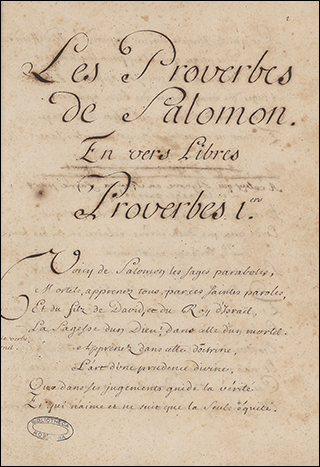 Les Proverbes
de Salomon.
En vers Libres
Proverbes 1.ers
Voicy de Salomon les sages paraboles,
Mortels, apprenez tous, par ces saintes paroles,
Et du filz de David, et du Roy d'Israël,
La Sagesse d'un Dieu, dans celle d'un mortel.
Apprenez dans elle doctrine,
L'art d'une prudence divine,
Que dans ses jugements guide la vérité
Et qui n'aime et ne suit que la seule équité.